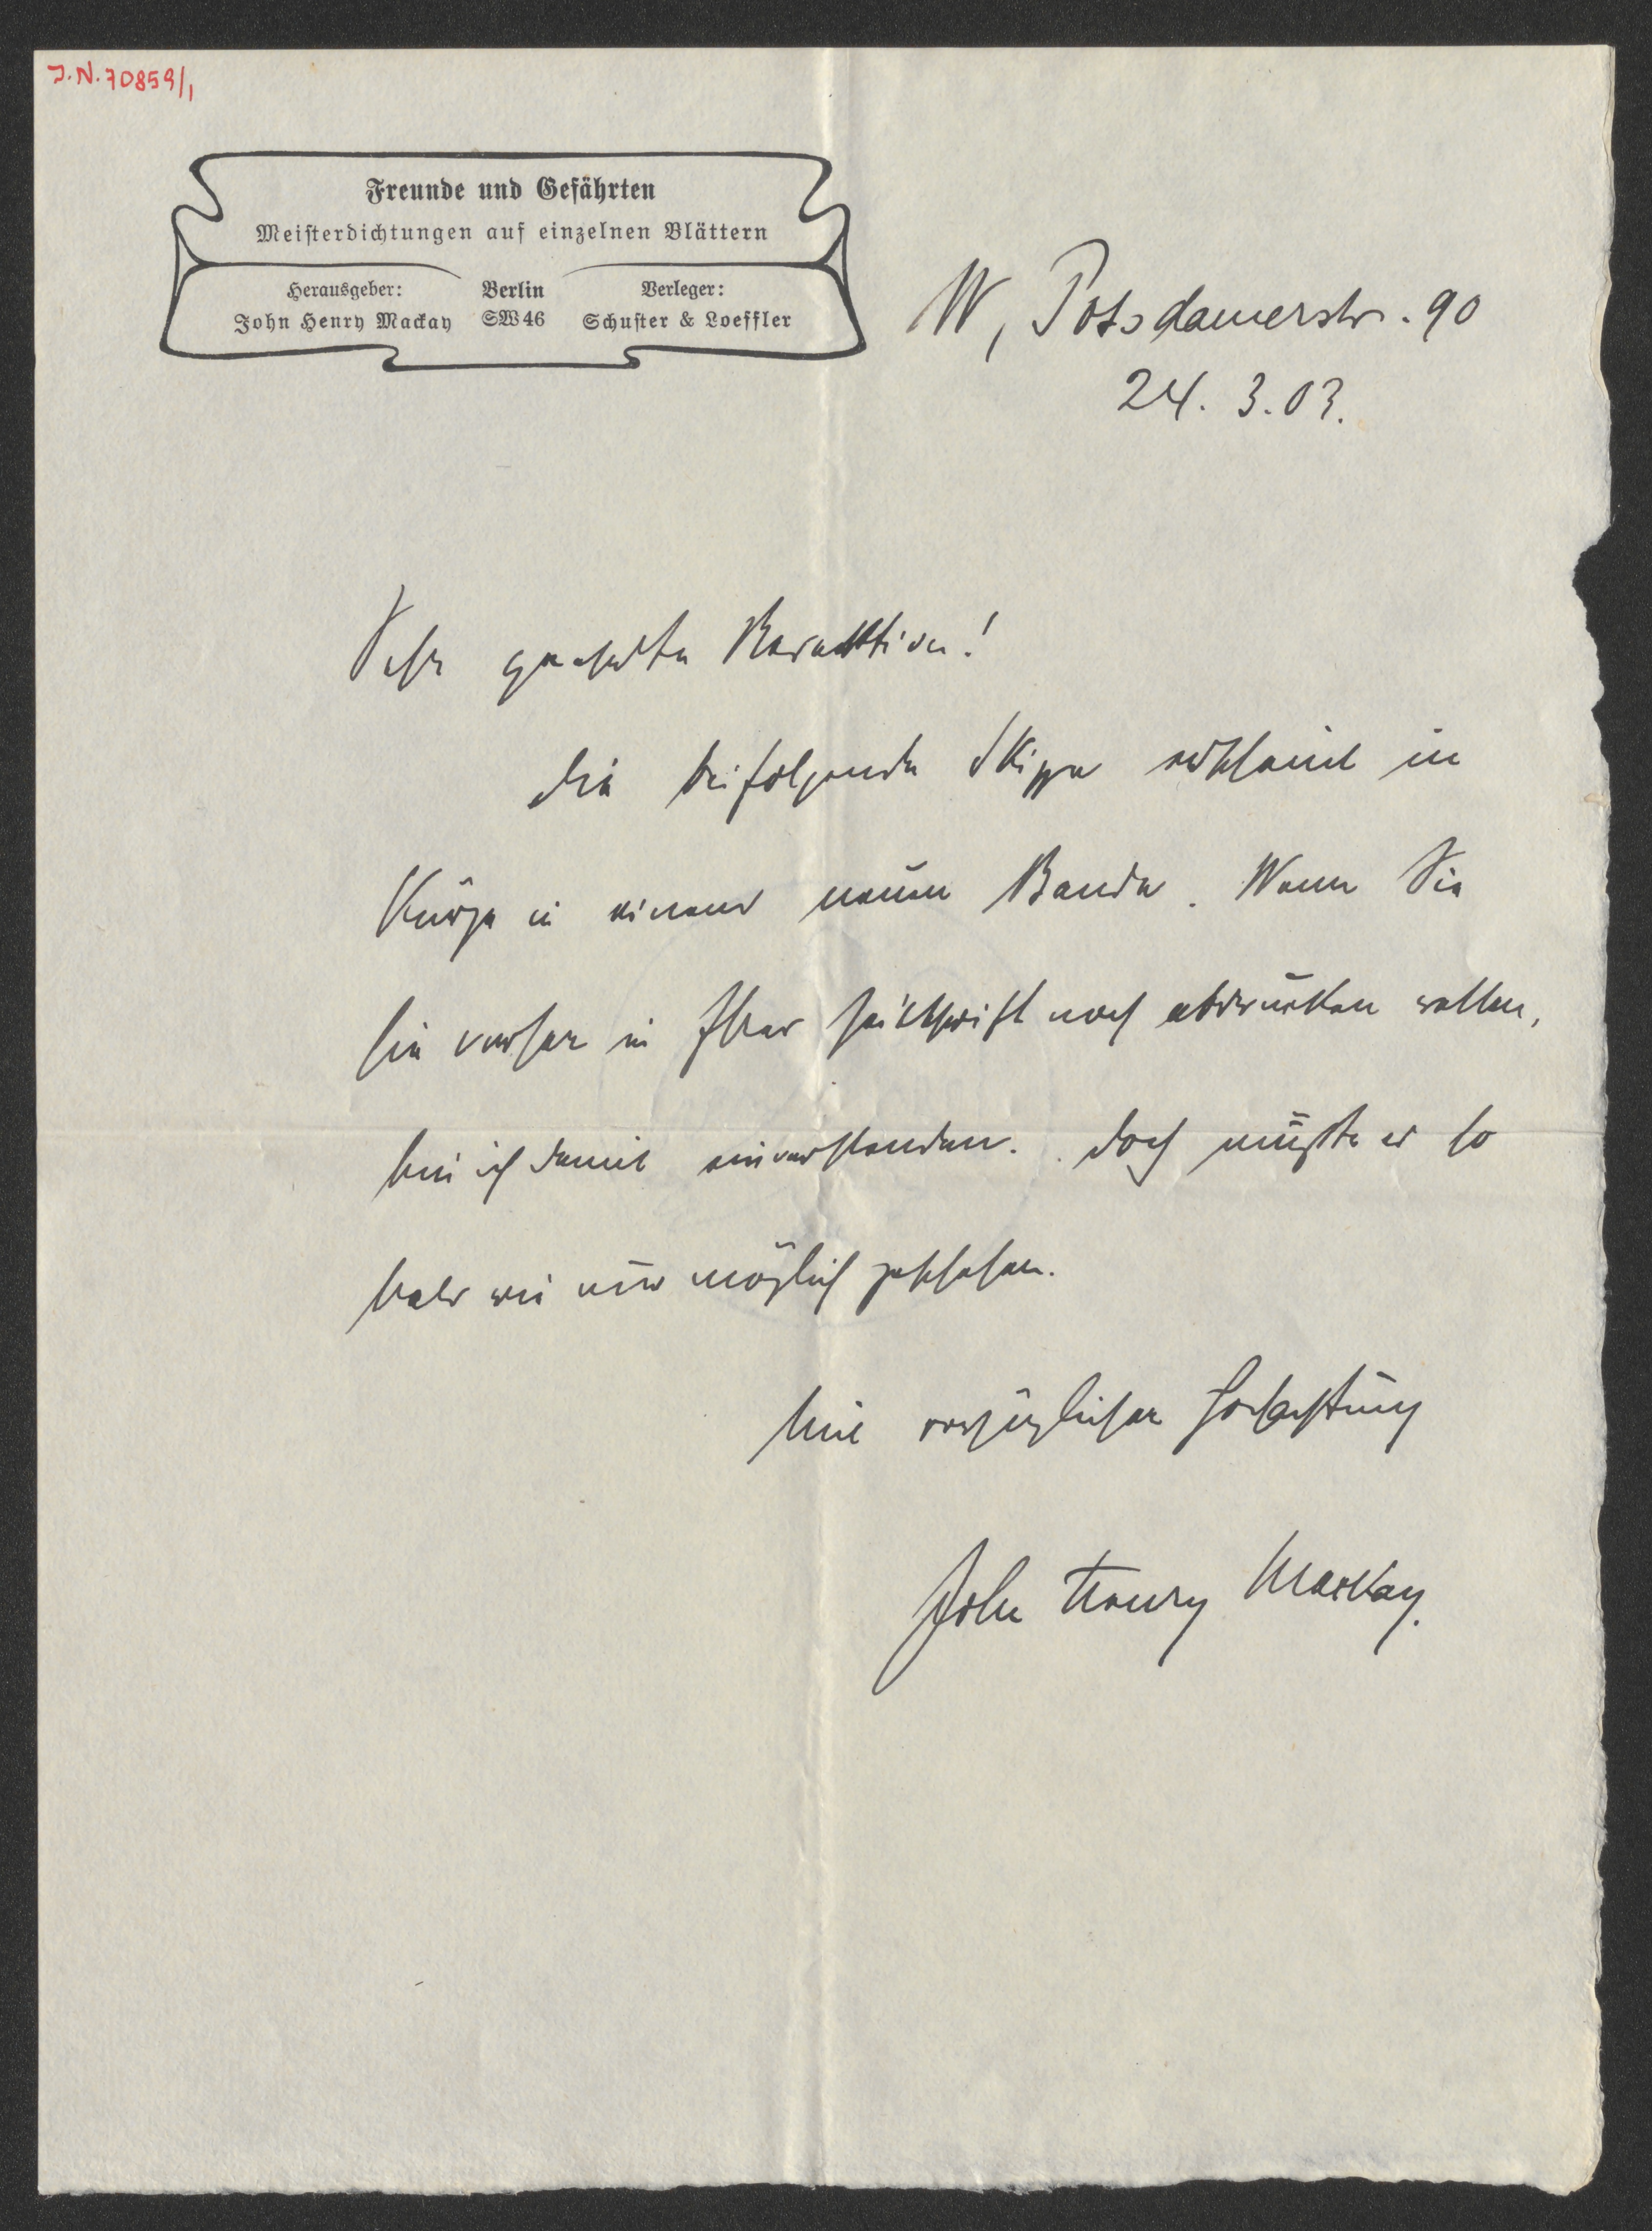 J.N. 70859/1
Freunde und Gefährten
Meisterdichtungen auf einzelnen Blättern
Herausgeber: Berlin Verleger:
John Henry Mackay SW 46 Schuster & Loeffler
W, Potsdamerstr. 90
24. 3. 03.
Sehr geehrte Redaktion!
die beifolgende Skizze erscheint in
Kürze in einem neuen Bande. Wenn Sie
sie vorher in Ihrer Zeitschrift noch abdrucken wollen,
bin ich damit einverstanden. doch müsste es so
bald wie nur möglich geschehen.
Mit vorzüglicher Hochachtung
John Henry Mackay.